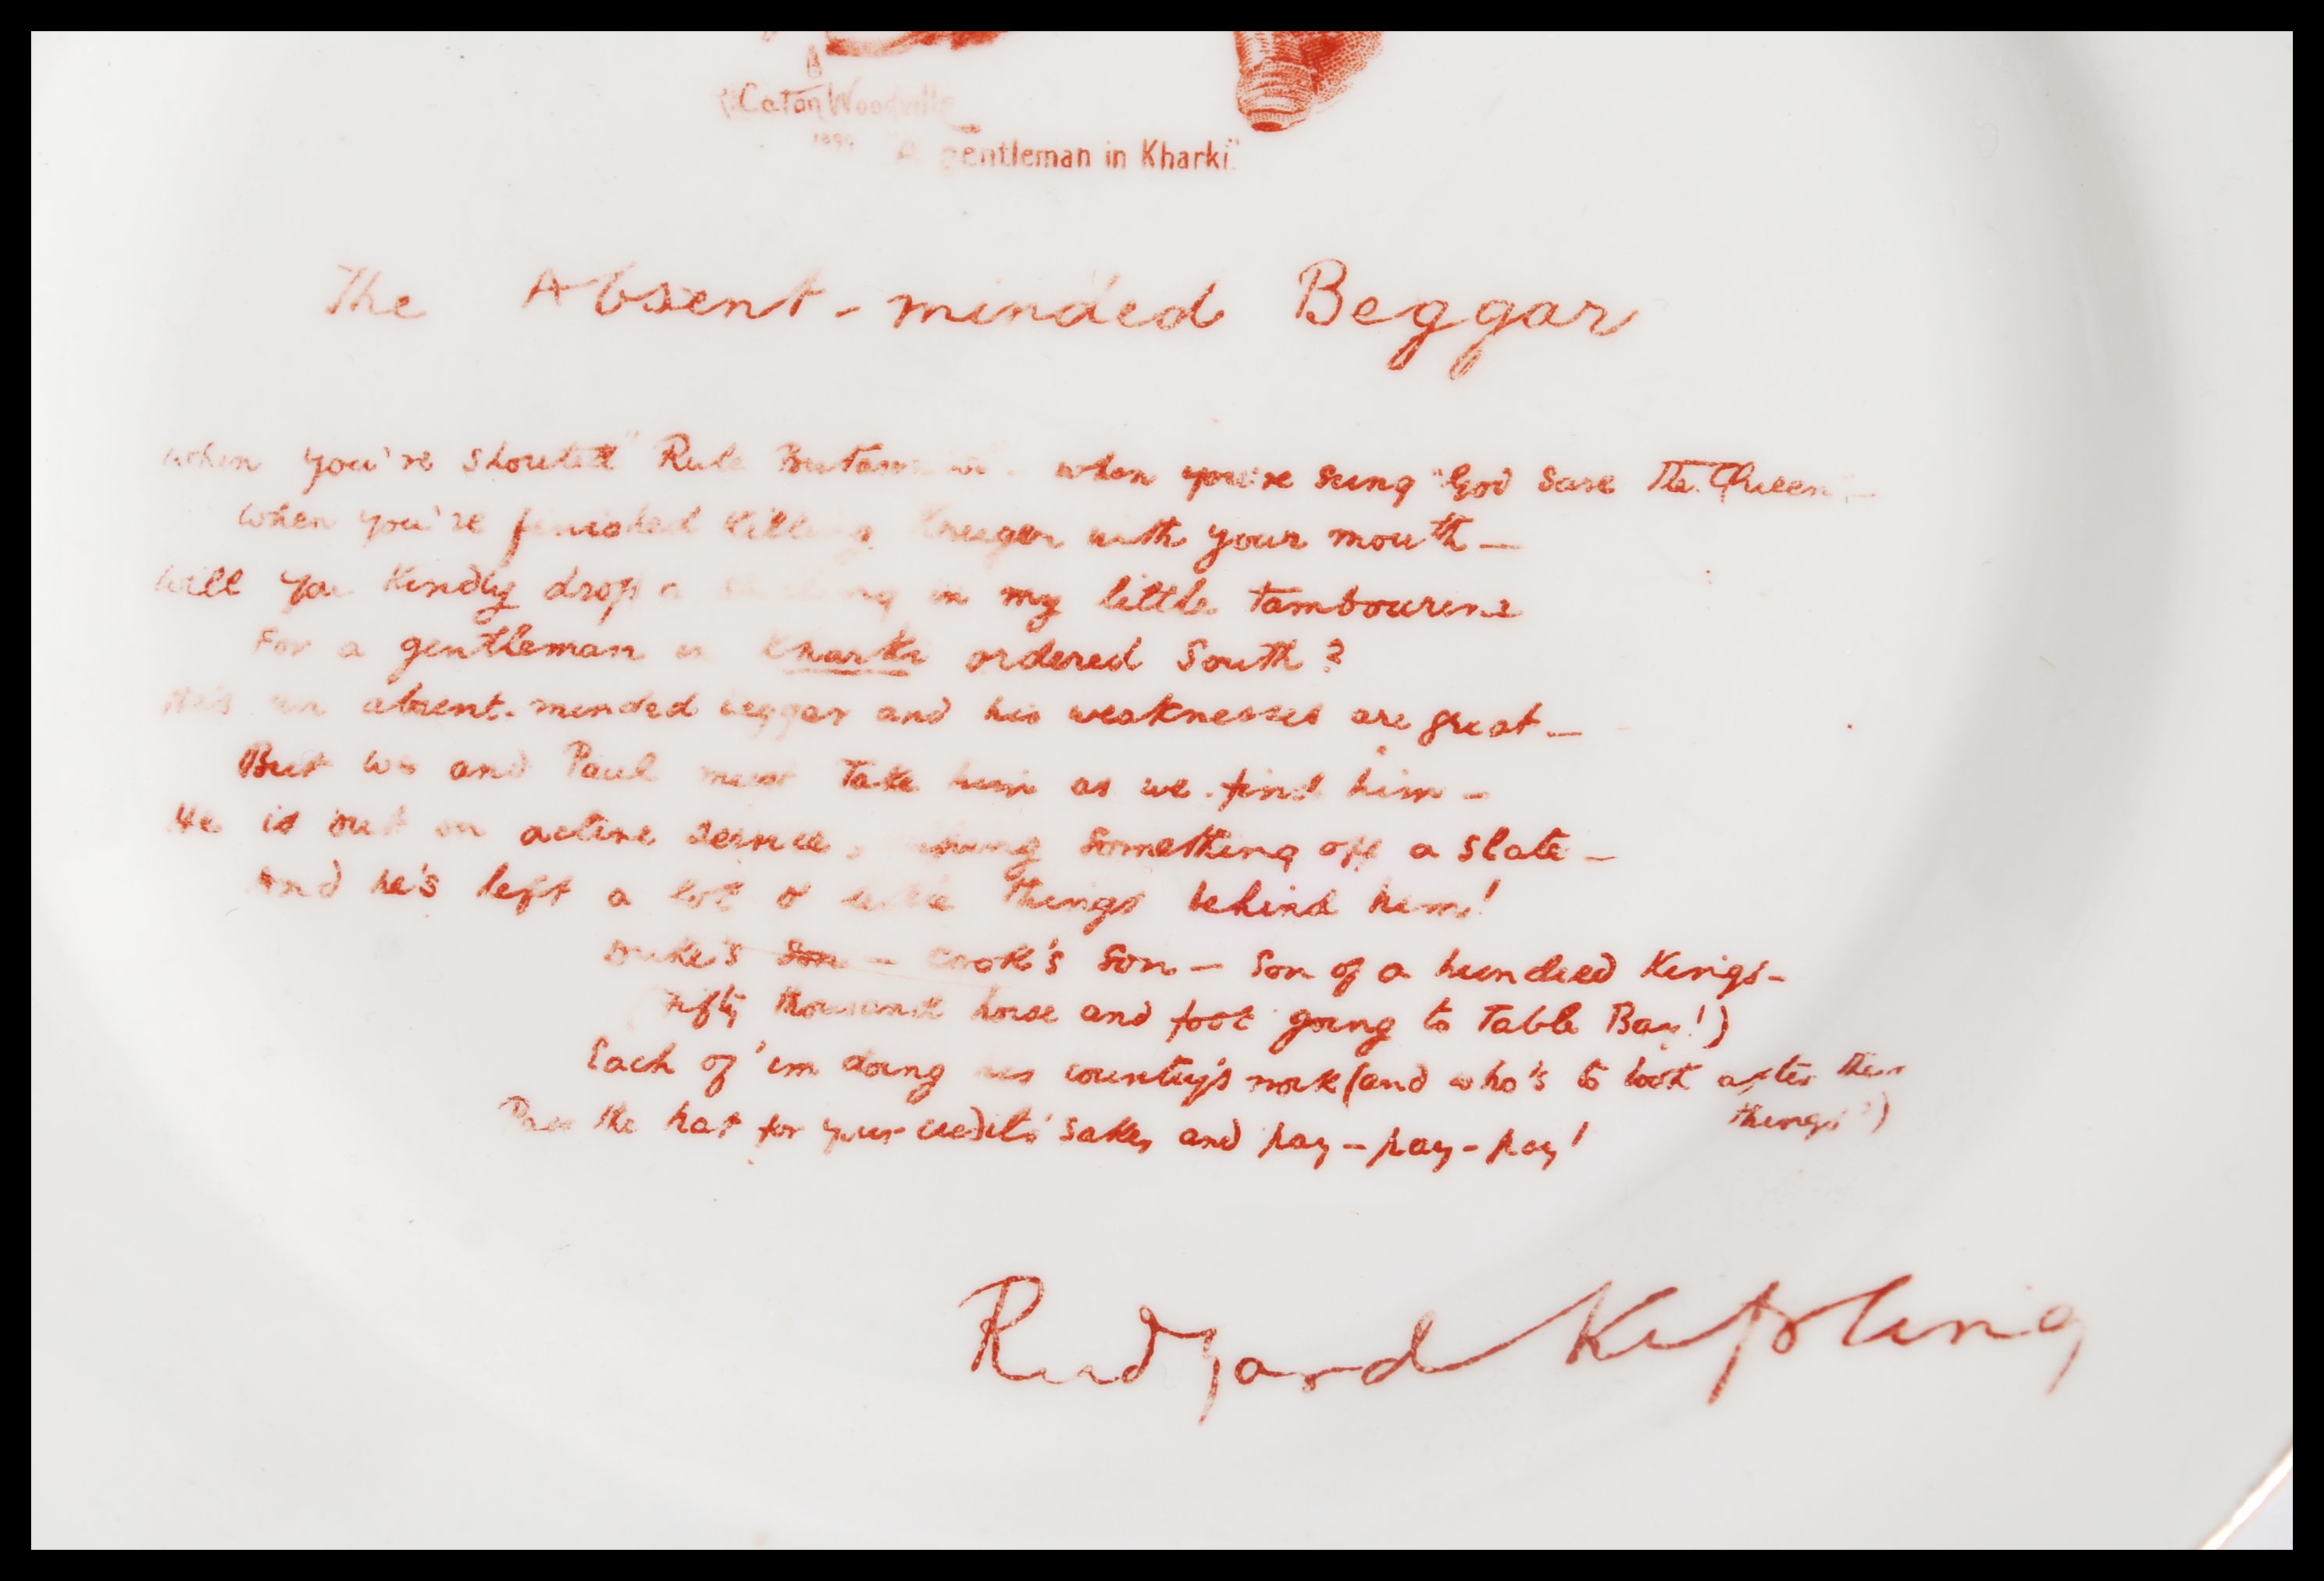 R. Caton Woodville
1899
"A gentleman in Kharki"
The Absent-minded Beggar
When you're shouted "Rule Britannia" - when you're sung "God save The Queen" -
When you're finished killing Kruger with your mouth -
Will you kindly drop a shilling in my little tambourine
For a gentleman in Kharki ordered South?
He's an absent-minded beggar and his weaknesses are great -
But we and Paul must take him as we find him -
He is out on active service, wiping something off a slate -
And he's left a lot o' little things behind him!
Duke's son - cook's son - son of a hundred Kings -
(Fifty thousand horse and foot going to Table Bay!)
Each of 'em doing his country's work (and who's to look after their
things?)
Pass the hat for your credit's sake, and pay - pay - pay!
Rudyard Kipling